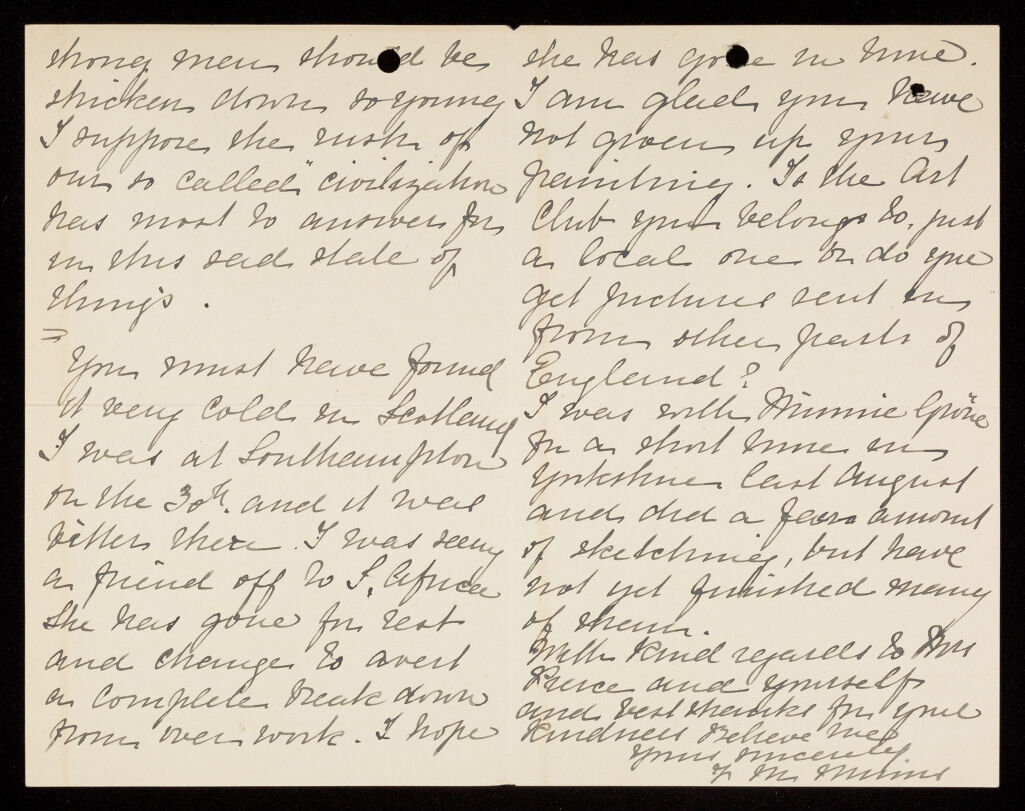 strong men should be
stricken down so young
I suppose the rush of
our so called "civilization
has most to answer for
in this sad state of
things.
You must have found
it very cold in Scotland
I was at Southampton
on the 30th. and it was
bitter there. I was seeing
a friend off to S. Africa
She has gone for rest
and change to avert
a complete break down
from over work. I hope
she has gone in time.
I am glad you have
not given up your
painting. Is the Art
Club you belong to, just
a local one or do you
get pictures sent in
from other parts of
England?
I was with Minnie
for a short time in
Yorkshire last August
and did a fair amount
of sketching, but have
not yet finished many
of them.
With kind regards to Mrs
Pierce and yourself
and best thanks for your
kindness Believe me
Yours sincerely